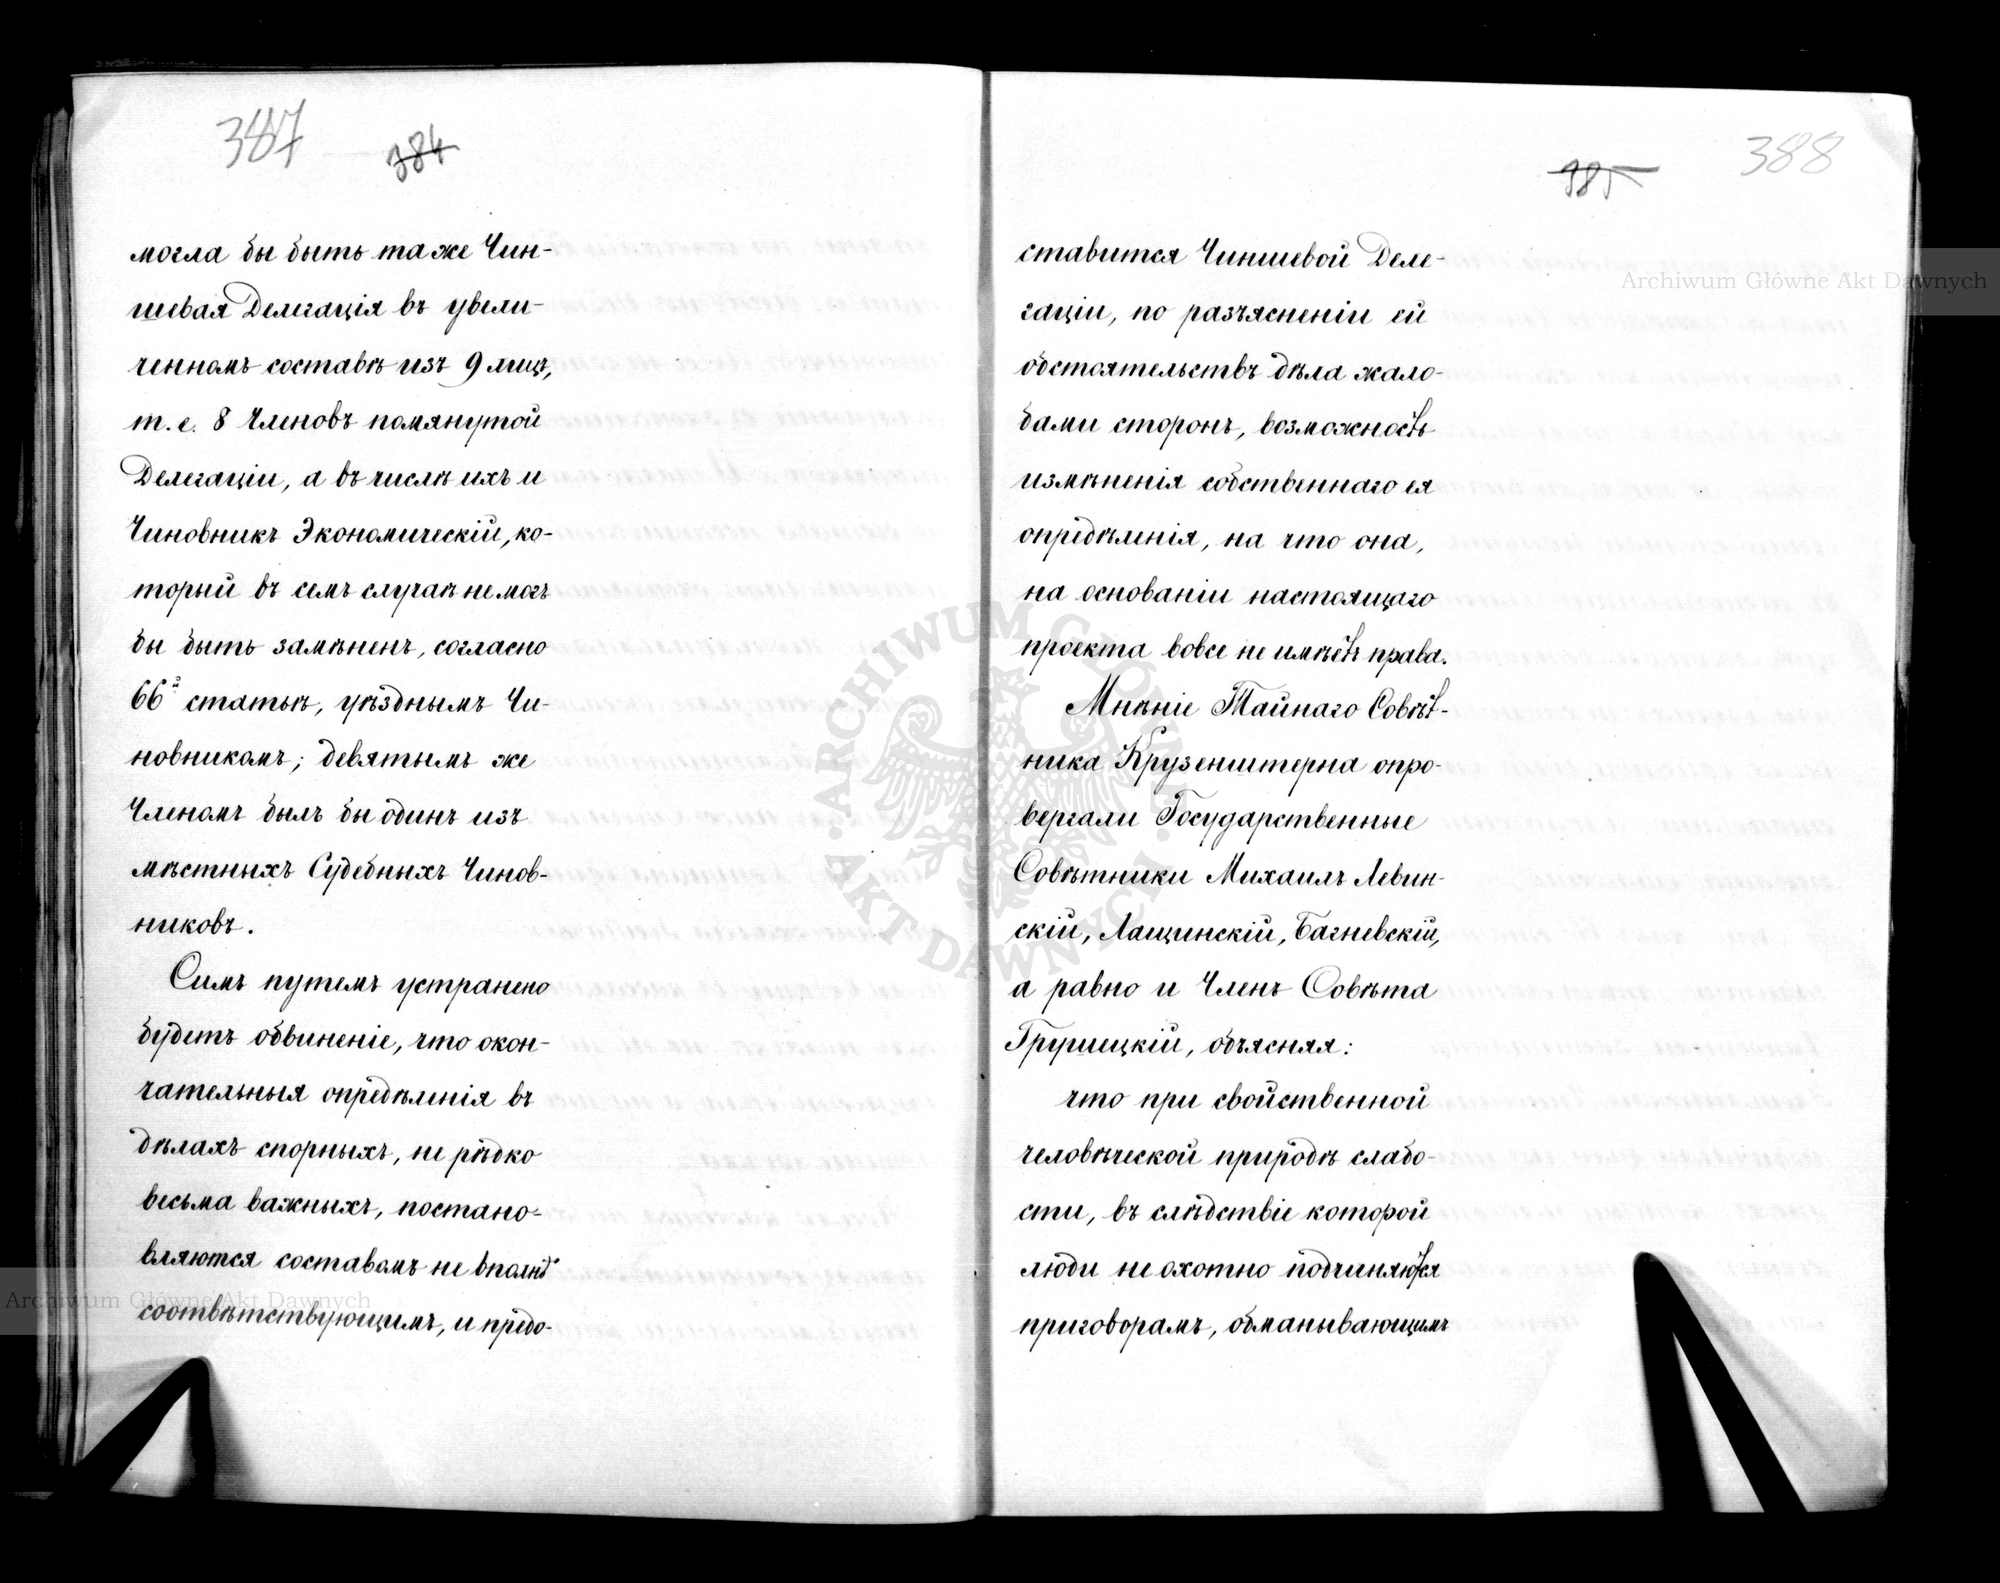 387
384
могла бы быть та же Чин-
шевая Делегація въ увели-
ченномъ составѣ изъ 9 лицъ,
т. е. 8 Членовъ помянутой
Делегаціи, а въ числѣ ихъ и
Чиновникъ Экономическій, ко-
торый въ семъ случаѣ не могъ
бы быть замѣненъ, согласно
66й статьѣ, уѣзднымъ Чи-
новникомъ; девятымъ же
Членомъ былъ бы одинъ изъ
мѣстныхъ Судебныхъ Чинов-
никовъ.
Симъ путемъ устранено
будетъ обвиненіе, что окон-
чательныя опредѣленія въ
дѣлахъ спорныхъ, не рѣдко
весьма важныхъ, постано-
вляются составомъ не вполнѣ
соотвѣтствующимъ, и предо-
388
385
ставится Чиншевой Деле-
гаціи, по разъясненіи ей
обстоятельствъ дѣла жало-
бами сторонъ, возможность
измѣненія собственнаго ея
опредѣленія, на что она,
на основаніи настоящаго
проекта вовсе не имѣетъ права.
Мнѣніе Тайнаго Совѣт-
ника Крузенштерна опро-
вергали Государственные
Совѣтники Михаилъ Левин-
скій, Лащинскій, Багневскій,
а равно и Членъ Совѣта
Грушецкій, объясняя:
что при свойственной
человѣческой природѣ слабо-
сти, въ слѣдствіе которой
люди не охотно подчиняются
приговорамъ, обманывающимъ
Archiwum Główne Akt Dawnych
Archiwum Główne Akt Dawnych
ARCHIWUM GŁÓWNE AKT DAWNYCH